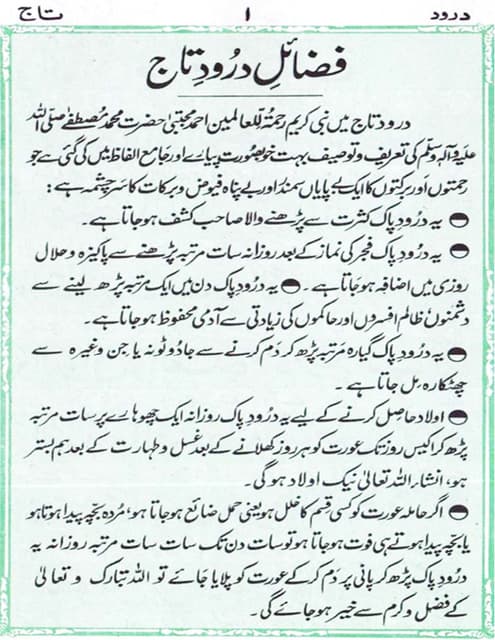 درود ۱ تاج
فضائلِ درُودِ تاج
درود تاج میں نبی کریم رحمۃ للعالمین احمد مجتبیٰ حضرت محمد مُصطفےٰ صلّی اللہ
علیہ وآلہٖ وسلّم کی تعریف و توصیف بہت خوبصورت پیارے اور جامع الفاظ میں کی گئی ہے جو
رحمتوں اور برکتوں کا ایک بے پایاں سمندر اور بے پناہ فیوض و برکات کا سرچشمہ ہے :
یہ درُود پاک کثرت سے پڑھنے والا صاحب کشف ہو جاتا ہے۔
یہ درُود پاک فجر کی نماز کے بعد روزانہ سات مرتبہ پڑھنے سے پاکیزہ و حلال
روزی میں اضافہ ہو جاتا ہے۔ یہ درُود پاک دن میں ایک مرتبہ پڑھ لینے سے
دشمنوں ظالم افسروں اور حاکموں کی زیادتی سے آدمی محفوظ ہو جاتا ہے۔
یہ درُود پاک گیارہ مَرتبہ پڑھ کر دَم کرنے سے جادُو ٹونہ یا جن وغیرہ سے
چھٹکارہ مل جاتا ہے ۔
اولاد حاصل کرنے کے لیے یہ درُود پاک روزانہ ایک چھوہارے پر سات مرتبہ
پڑھ کر اکیس روز تک عورت کو ہر روز کھلانے کے بعد غسل و طہارت کے بعد ہم بستر
ہو، انشاء اللہ تعالیٰ نیک اولاد ہو گی۔
اگر حاملہ عورت کو کسی قسم کا خلل ہو یعنی حمل ضائع ہو جاتا ہو، مُردہ بچّہ پیدا ہوتا ہو
یا بچّہ پیدا ہوتے ہی فوت ہو جاتا ہو تو سات دن تک سات سات مرتبہ روزانہ یہ
درُود پاک پڑھ کر پانی پر دَم کر کے عورت کو پلایا جائے تو اللہ تبارک و تعالیٰ
کے فضل و کرم سے خیر ہو جائے گی۔